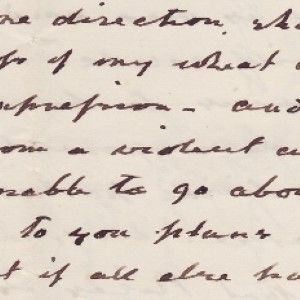 ne direction, sh
of my wheat
mpression - and
om a violent a
nable to go abou
to you plans
t if all else ha